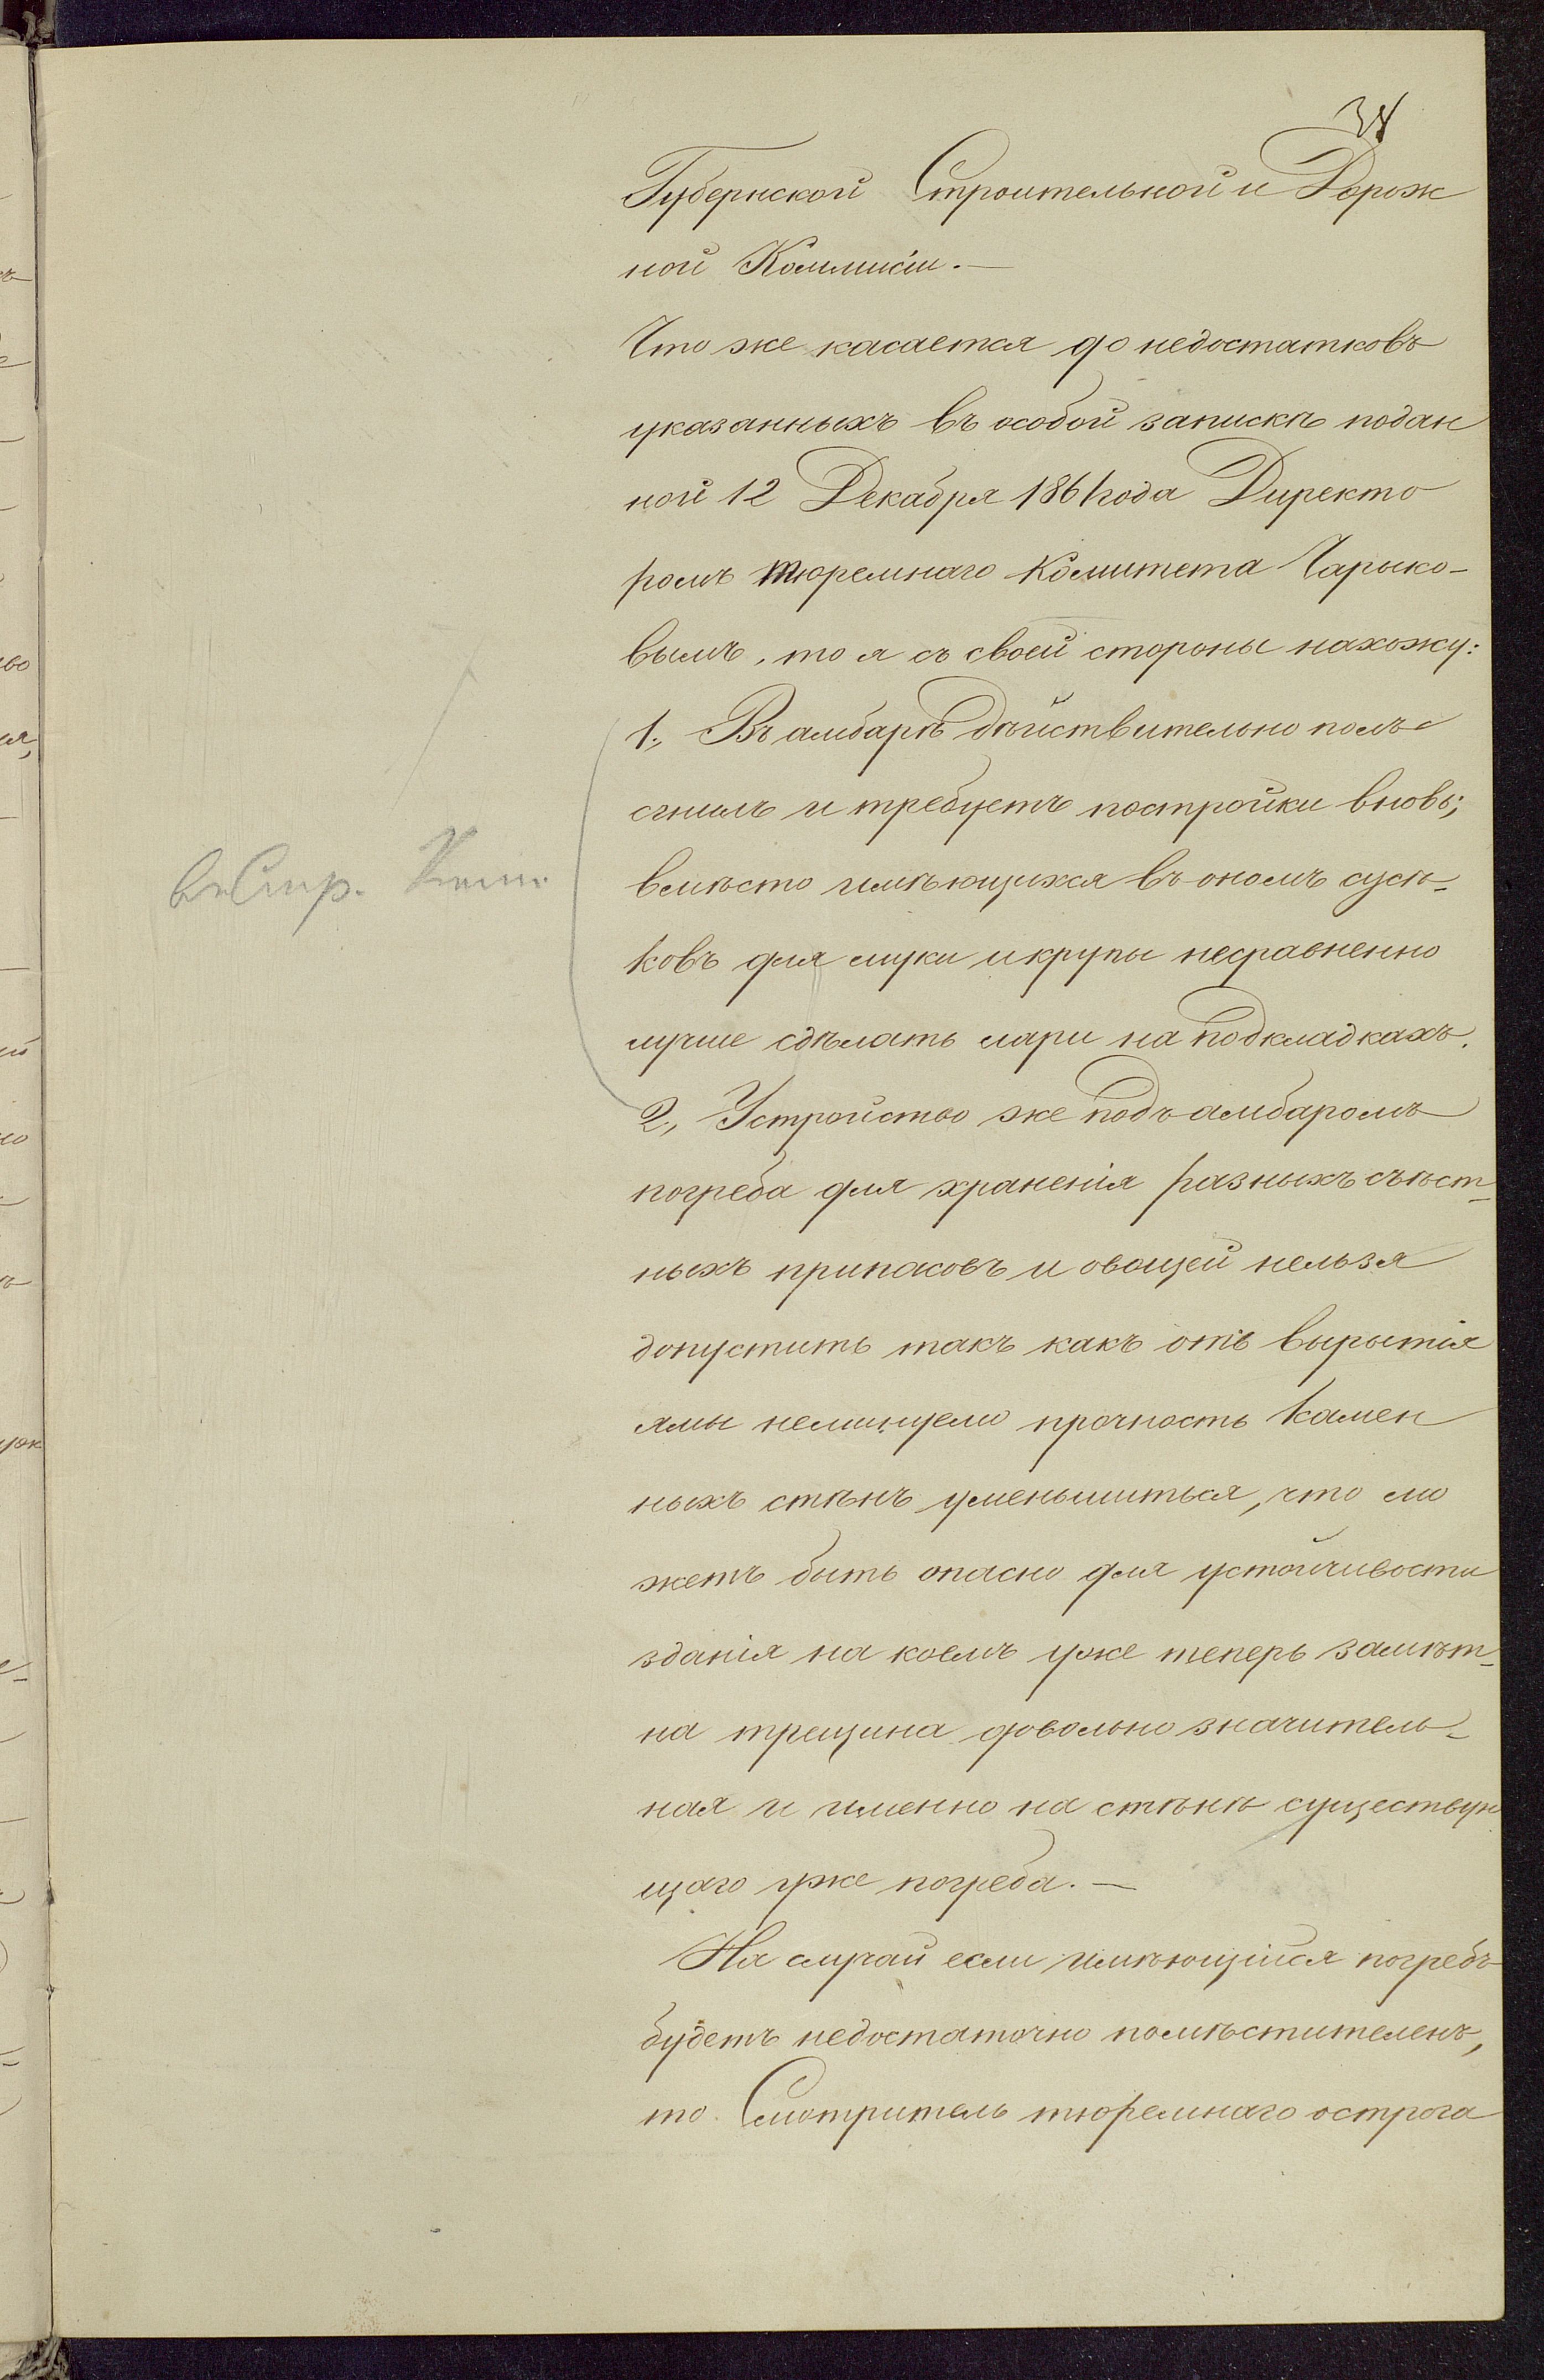 34
Губернской Строительной и Дорож
ной Коммисіи.—
Что же касается до недостатковъ
указанныхъ въ особой запискѣ подан
ной 12 Декабря 1861 года Директо
ромъ тюремнаго Комитета Чарыко-
вымъ, то я съ своей стороны нахожу:
1., Въ амбарѣ дѣйствительно полъ
сгнилъ и требуетъ постройки вновь;
вмѣсто имѣющихся въ ономъ сусѣ-
ковъ для муки и крупы несравненно
лучше сдѣлать лари на подкладкахъ.
2., Устройство же подъ амбаромъ
погреба для храненія разныхъ съѣст-
ныхъ припасовъ и овощей нельзя
допустить такъ какъ отъ вырытія
ямы неминуемо прочность камен
ныхъ стѣнъ уменьшиться, что мо
жетъ быть опасно для устойчивости
зданія на коемъ уже теперь замѣт-
на трещина довольно значитель-
ная и именно на стѣнѣ существую
щаго уже погреба.—
На случай если имѣющійся погребъ
будетъ недостаточно помѣстителенъ,
то Смотритель тюремнаго острога
въ Стр. Ком.